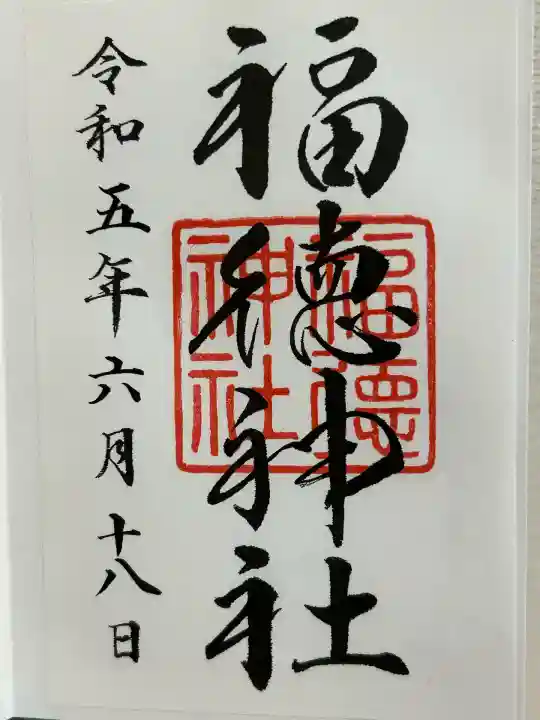 福德神社
福德神社
令和五年六月十八日